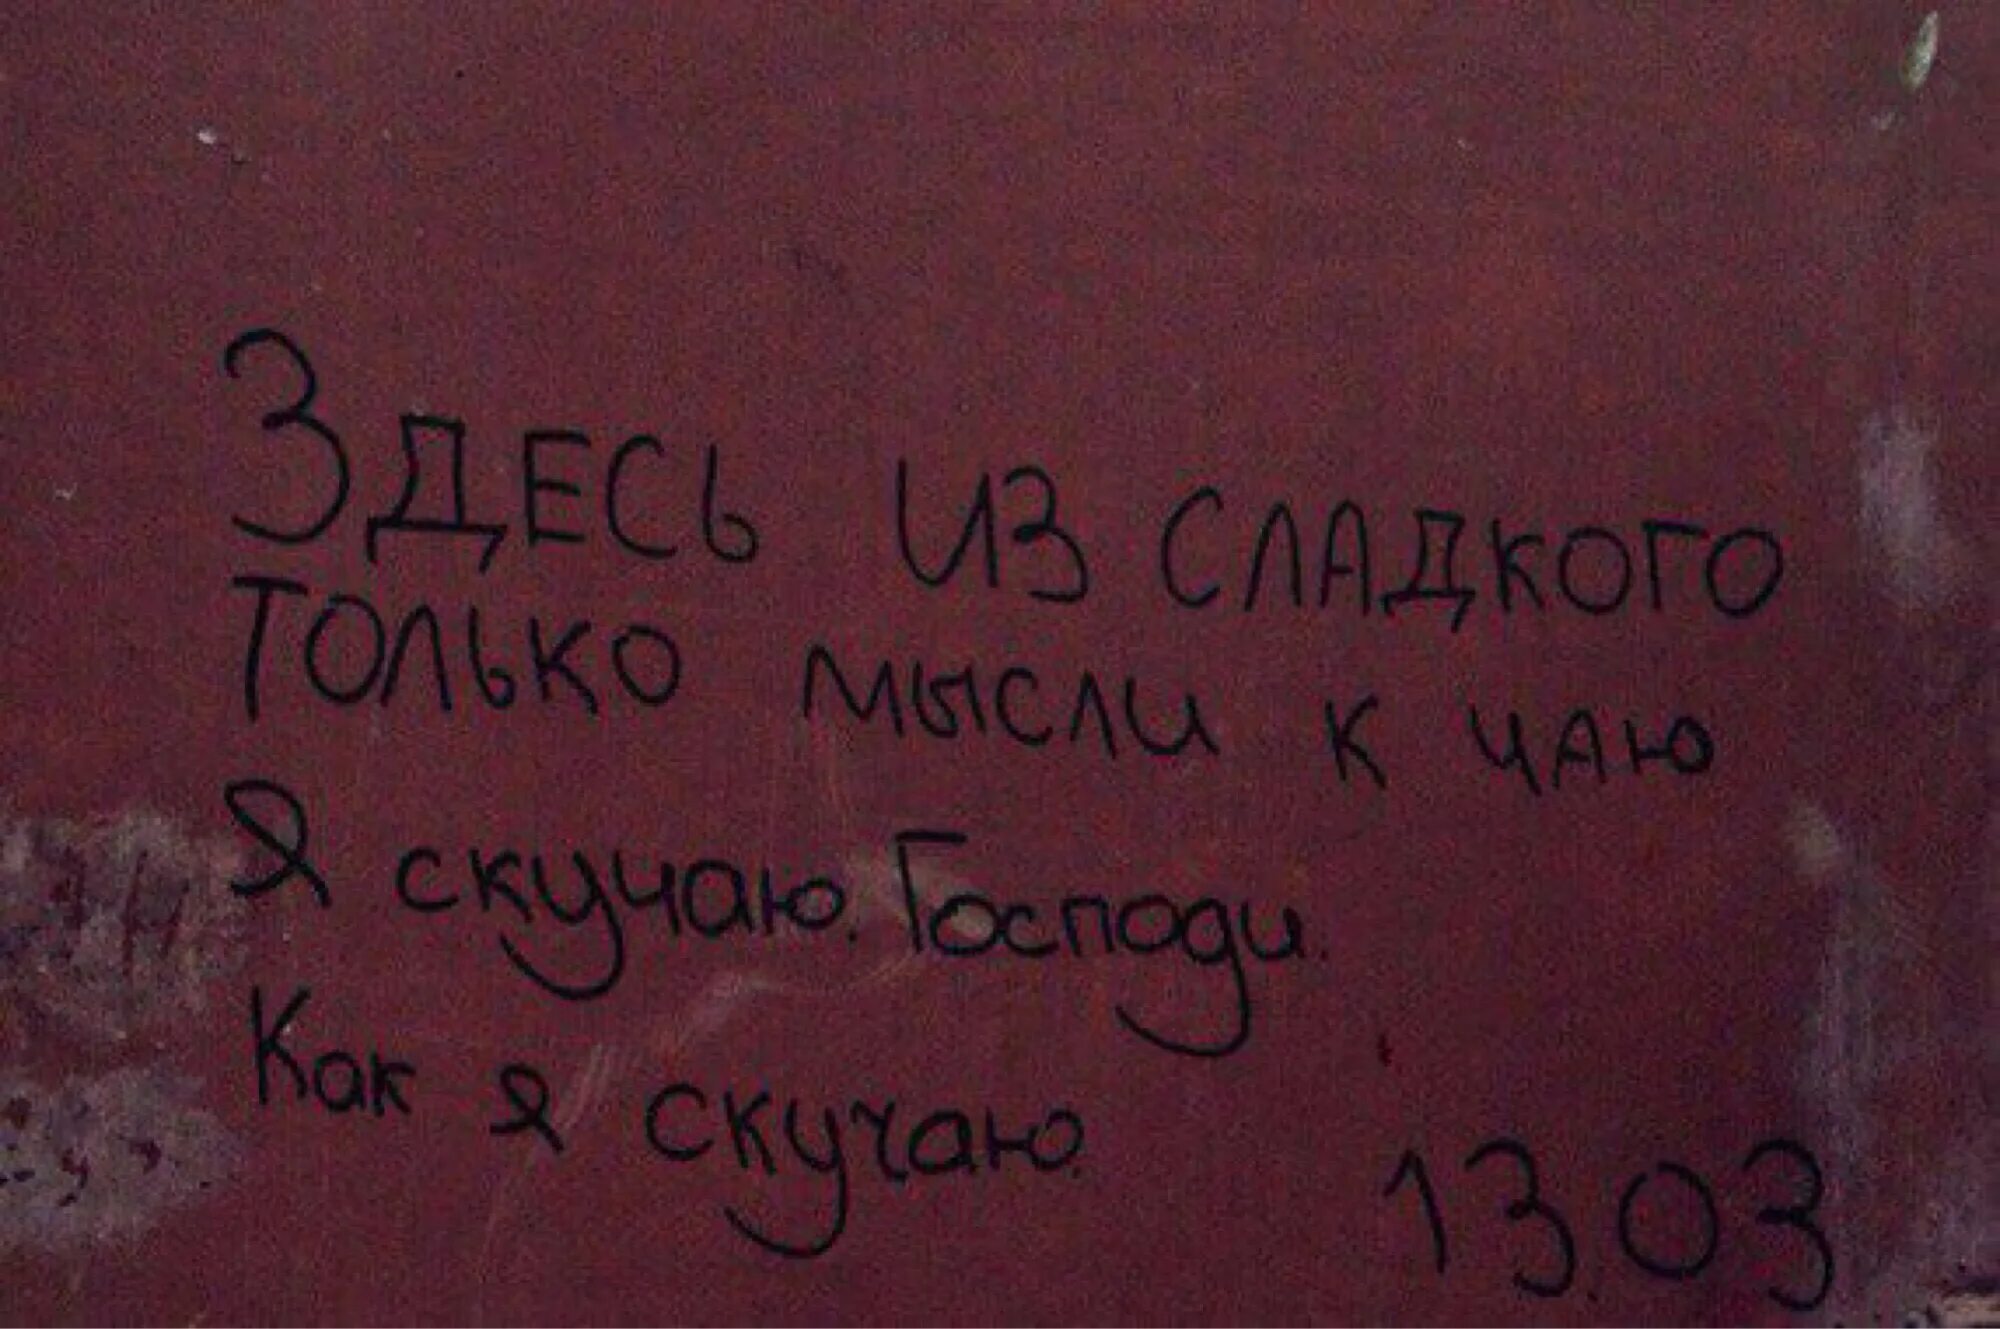 Здесь из сладкого
только мысли к чаю
Я скучаю. Господи.
Как я скучаю.
13.03